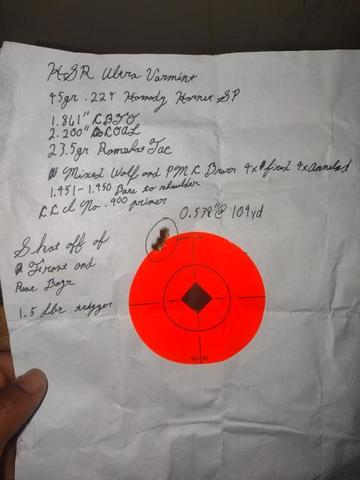 HSR Ultra Varmint
45gr .224 Hornady Hornet SP
1.861" CBTO
2.200" COAL
23.5gr Ramshot Tac
Mixed Wolf and PMC Brass 4x fired 4x Annealed
1.451-1.450 Base to shoulder
CCI No. 400 primer
0.578" @ 104yd
Shot off of
Front and
Rear Bags
1.5 lbs trigger